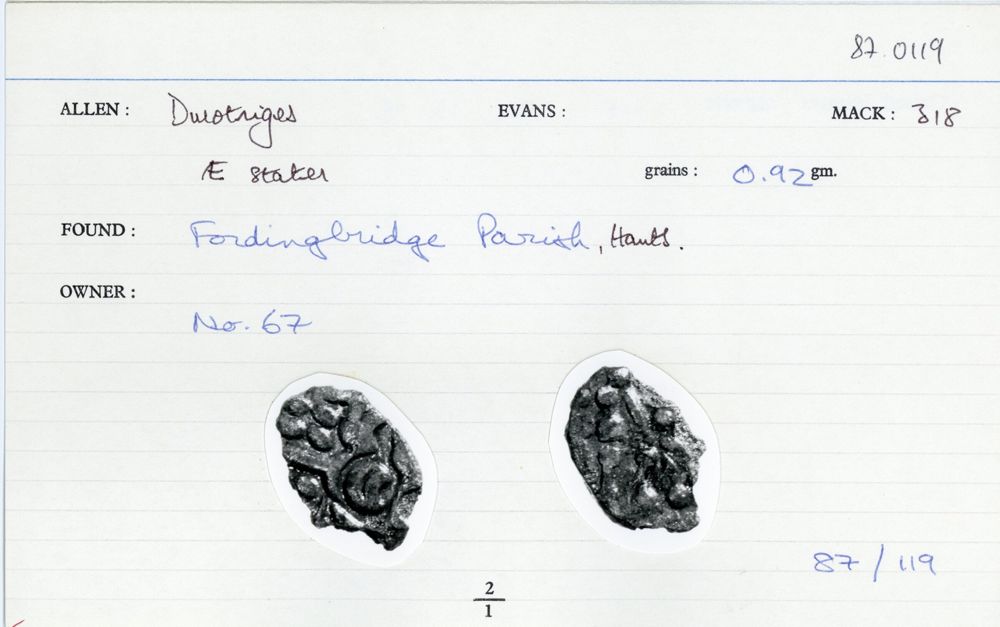 87.0119
ALLEN : Durotriges EVANS : MACK : 318
Æ stater grains : 0.92 gm.
FOUND : Fordingbridge Parish, Hants.
OWNER :
No. 67
87/119
2
1